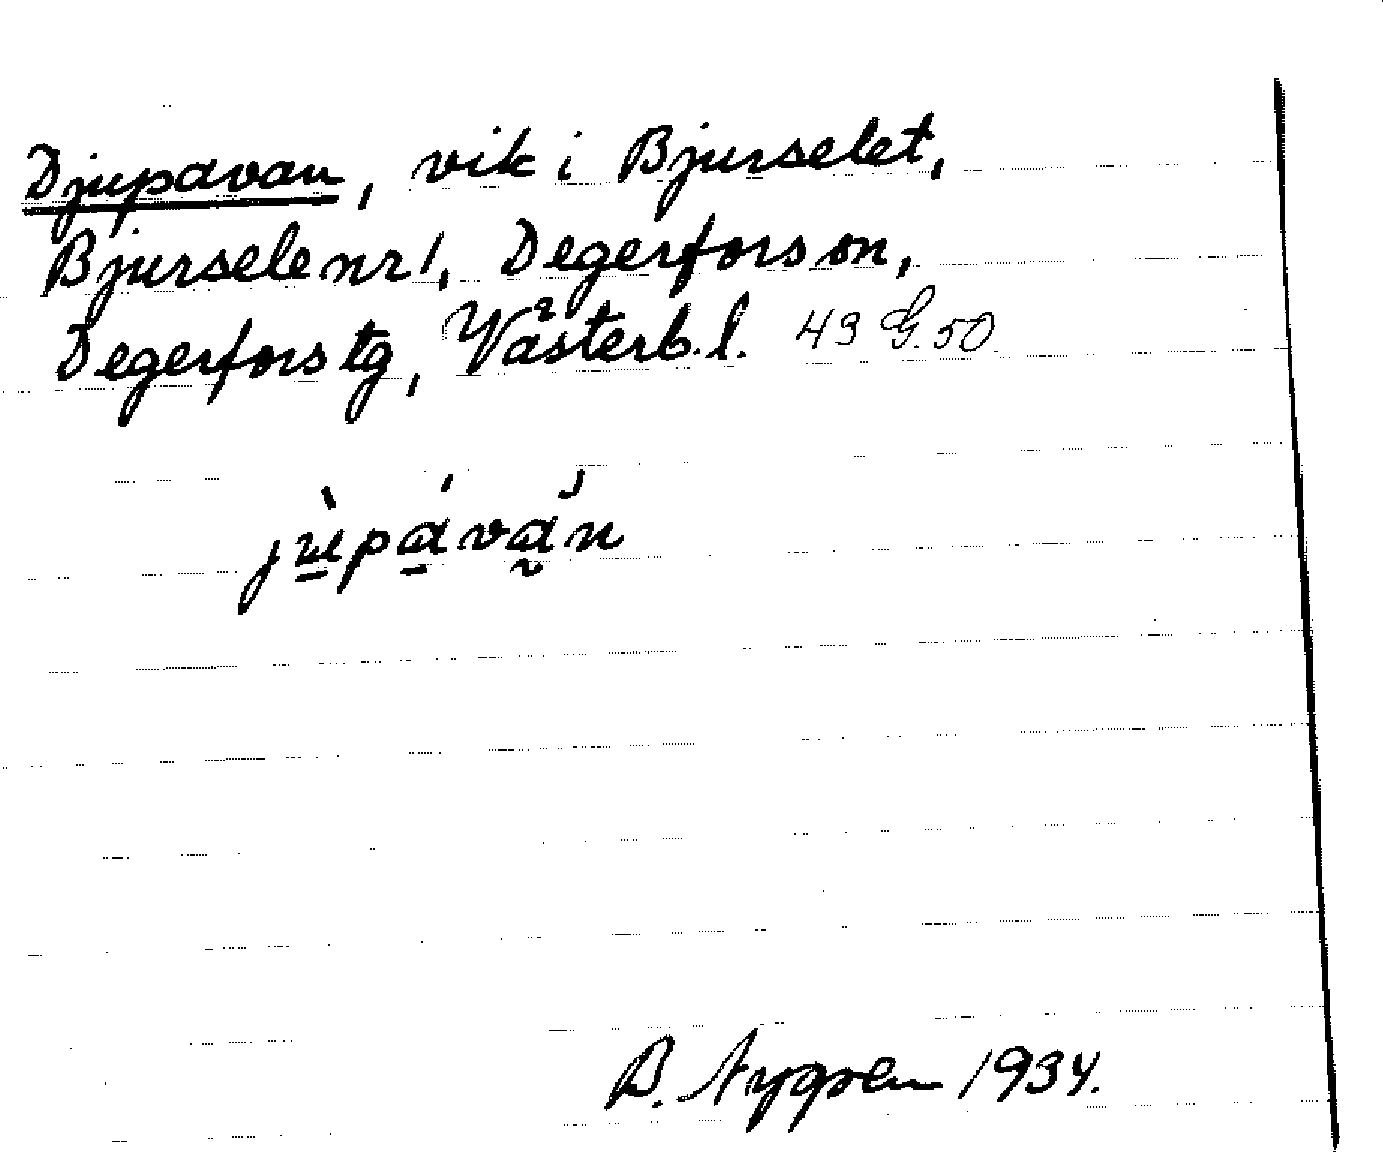 Djupavan, vik i Bjurselet,
Bjursele nr 1, Degerfors sn,
Degerfors tg, Västerb. l. 43 G. 50
jùpáván
B. Nygren 1934.